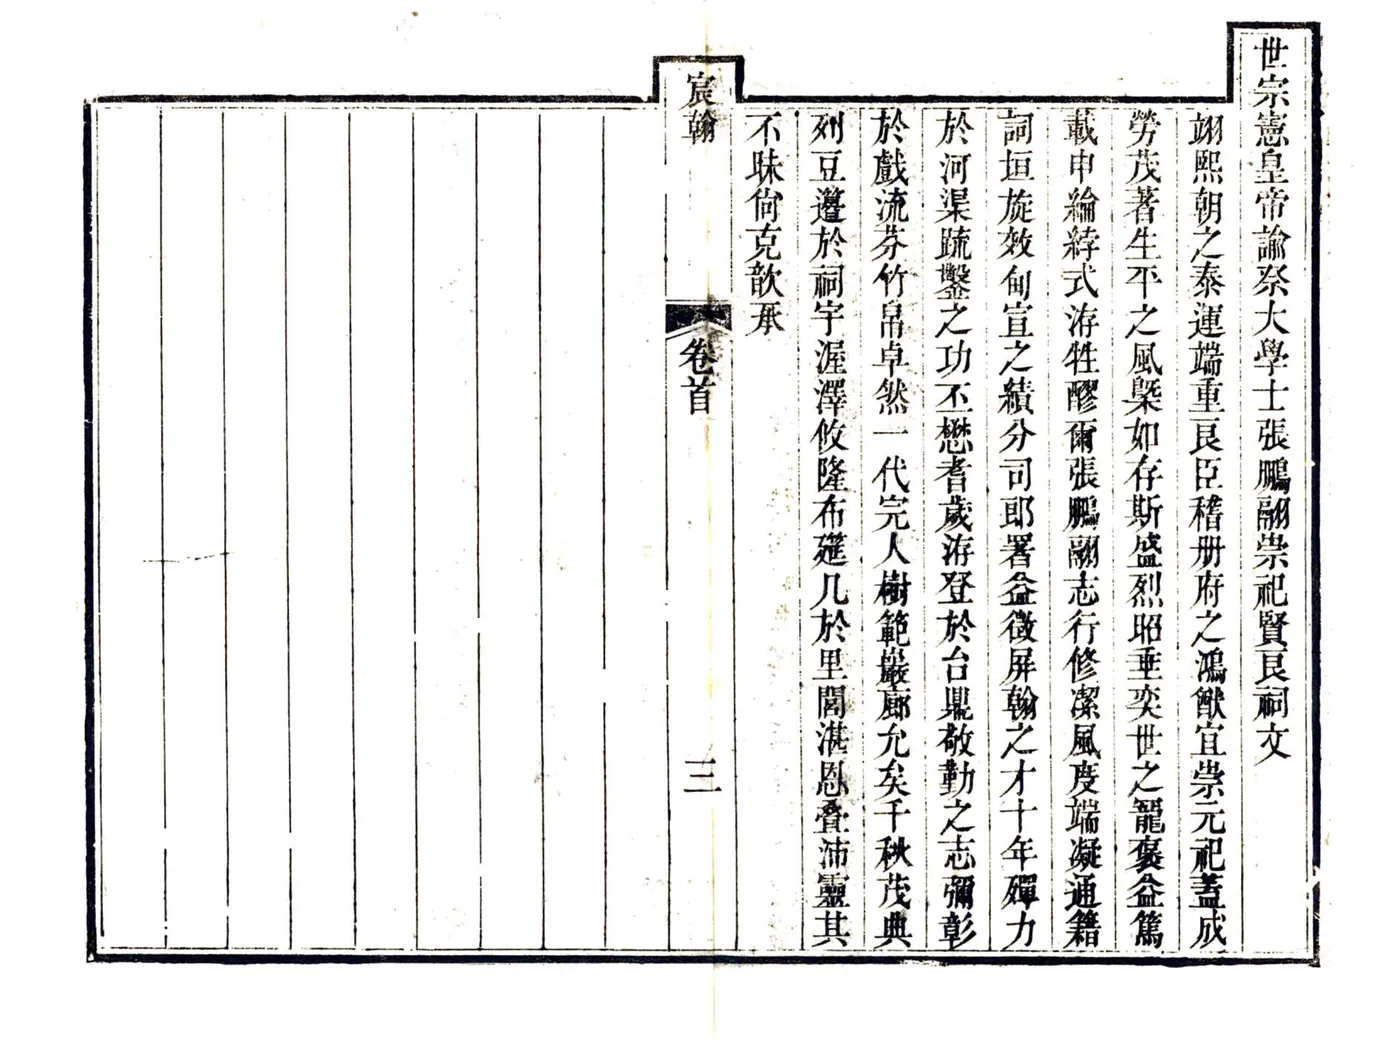 世宗憲皇帝諭祭大學士張鵬翮崇祀賢良祠文
翊熙朝之泰運端重良臣稽册府之鴻猷宜崇元祀蓋成
勞茂著生平之風槩如存斯盛烈昭垂奕世之寵褒益篤
載申綸綍式洊牲醪爾張鵬翮志行修潔風度端凝通籍
詞垣旋效甸宣之績分司郎署益徵屏翰之才十年殫力
於河渠䟽鑿之功丕懋耆歲洊登於台鼎敬勤之志彌彰
於戲流芬竹帛卓然一代完人樹範巖廊允矣千秋茂典
列豆籩於祠宇渥澤攸隆布筵几於里閭湛恩疊沛靈其
不昧尙克歆承
宸翰
卷首
三